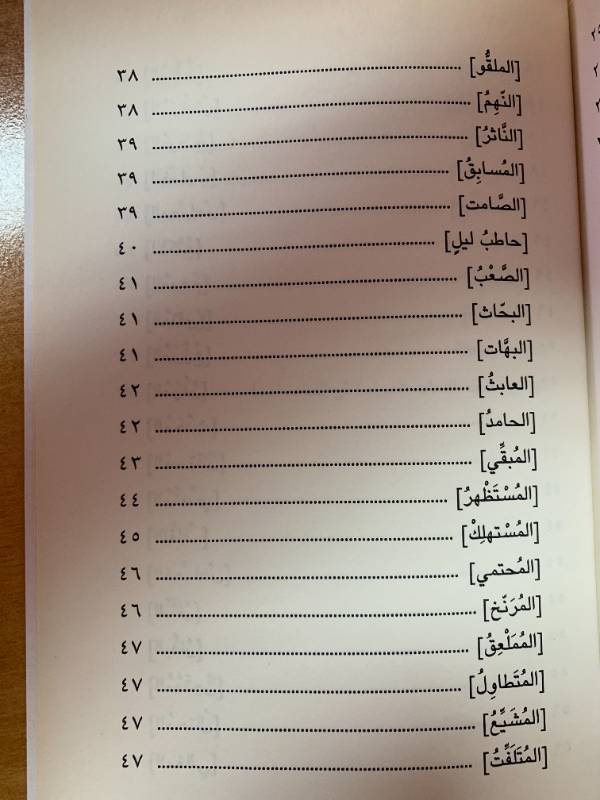 [الملقُّو] ........ ٣٨
[النّهِمُ] ........ ٣٨
[النَّاثرُ] ........ ٣٩
[المُسابِقُ] ........ ٣٩
[الصَّامت] ........ ٣٩
[حاطبُ ليلٍ] ........ ٤٠
[الصَّعْبُ] ........ ٤١
[البحّاث] ........ ٤١
[البهَّات] ........ ٤١
[العابثُ] ........ ٤٢
[الحامدُ] ........ ٤٢
[المُبقِّي] ........ ٤٣
[المُسْتَظْهرُ] ........ ٤٤
[المُسْتهلِكْ] ........ ٤٥
[المُحتمي] ........ ٤٦
[المُرَنّخ] ........ ٤٦
[المُمَلْعِقُ] ........ ٤٧
[المُتَطاوِلُ] ........ ٤٧
[المُشَيِّعُ] ........ ٤٧
[المُتَلَفِّتُ] ........ ٤٧